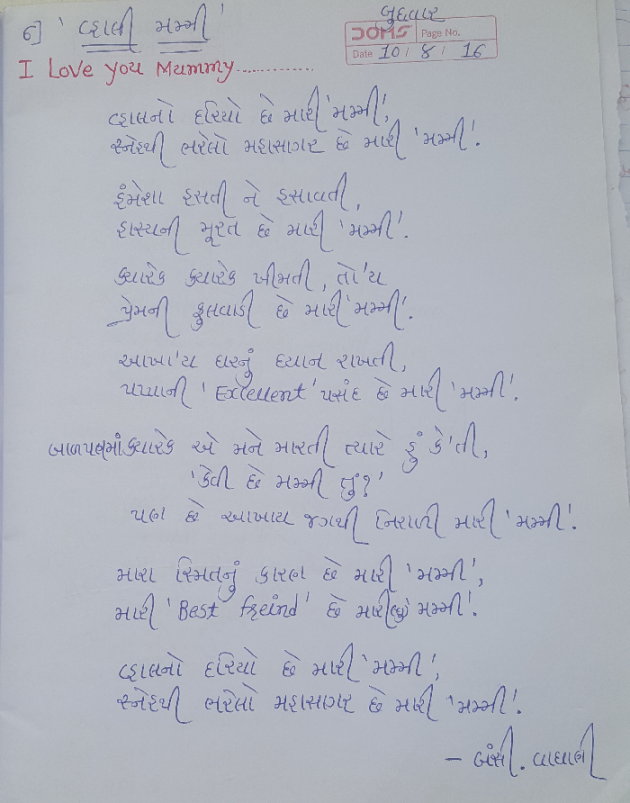 ૨] 'વ્હાલી મમ્મી'
બુધવાર
DOMS Page No.
Date 10 / 8 / 16
I Love you Mummy..............
વ્હાલનો દરિયો છે મારી 'મમ્મી',
સ્નેહથી ભરેલો મહાસાગર છે મારી 'મમ્મી'.
હંમેશા હસતી ને હસાવતી,
હાસ્યની મૂરત છે મારી 'મમ્મી'.
ક્યારેક ક્યારેક ખીમતી, તો'ય
પ્રેમની ફુલવાડી છે મારી 'મમ્મી'.
આખા'ય ઘરનું ધ્યાન રાખતી,
પપ્પાની 'Excellent' પસંદ છે મારી 'મમ્મી'.
બાળપણમાં ક્યારેક એ મને મારતી ત્યારે હું કે'તી,
'કેવી છે મમ્મી તું?'
પણ છે આખાય જગથી નિરાળી મારી 'મમ્મી'.
મારા સ્મિતનું કારણ છે મારી 'મમ્મી',
મારી 'Best Freind' છે મારી 'મમ્મી'.
વ્હાલનો દરિયો છે મારી 'મમ્મી',
સ્નેહથી ભરેલો મહાસાગર છે મારી 'મમ્મી'.
- બંસી.